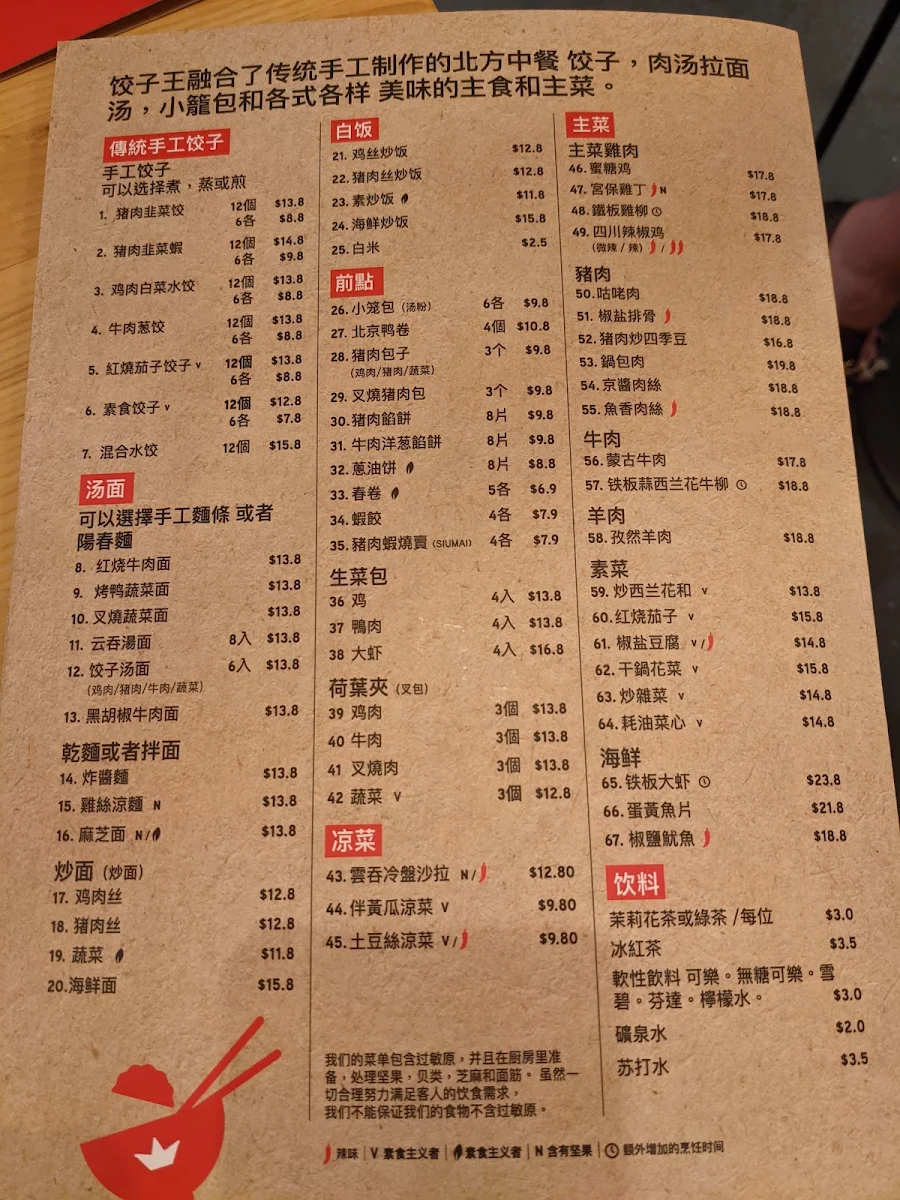 饺子王融合了传统手工制作的北方中餐 饺子，肉汤拉面
汤，小籠包和各式各样 美味的主食和主菜。
傳統手工饺子
手工饺子
可以选择煮，蒸或煎
1. 猪肉韭菜饺 12個 $13.8
6各 $8.8
2. 猪肉韭菜蝦 12個 $14.8
6各 $9.8
3. 鸡肉白菜水饺 12個 $13.8
6各 $8.8
4. 牛肉葱饺 12個 $13.8
6各 $8.8
5. 紅燒茄子饺子 v 12個 $13.8
6各 $8.8
6. 素食饺子 v 12個 $12.8
6各 $7.8
7. 混合水饺 12個 $15.8
汤面
可以選擇手工麵條 或者
陽春麵
8. 红烧牛肉面 $13.8
9. 烤鸭蔬菜面 $13.8
10. 叉燒蔬菜面 $13.8
11. 云吞湯面 8入 $13.8
12. 饺子汤面 6入 $13.8
(鸡肉/猪肉/牛肉/蔬菜)
13. 黑胡椒牛肉面 $13.8
乾麵或者拌面
14. 炸醬麵 $13.8
15. 雞絲涼麵 N $13.8
16. 麻芝面 N / $13.8
炒面 (炒面)
17. 鸡肉丝 $12.8
18. 猪肉丝 $12.8
19. 蔬菜 $11.8
20.海鲜面 $15.8
白饭
21. 鸡丝炒饭 $12.8
22. 猪肉丝炒饭 $12.8
23. 素炒饭 $11.8
24. 海鲜炒饭 $15.8
25. 白米 $2.5
前點
26.小笼包 (汤粉) 6各 $9.8
27. 北京鸭卷 4個 $10.8
28. 猪肉包子 3个 $9.8
(鸡肉/猪肉/蔬菜)
29. 叉燒猪肉包 3个 $9.8
30.猪肉餡餅 8片 $9.8
31. 牛肉洋葱餡餅 8片 $9.8
32. 蔥油饼 8片 $8.8
33. 春卷 5各 $6.9
34. 蝦餃 4各 $7.9
35. 豬肉蝦燒賣 (SIUMAI) 4各 $7.9
生菜包
36 鸡 4入 $13.8
37 鴨肉 4入 $13.8
38 大虾 4入 $16.8
荷葉夾 (叉包)
39 鸡肉 3個 $13.8
40 牛肉 3個 $13.8
41 叉燒肉 3個 $13.8
42 蔬菜 V 3個 $12.8
凉菜
43.雲吞冷盤沙拉 N/ $12.80
44.伴黃瓜涼菜 V $9.80
45.土豆絲涼菜 V/ $9.80
我们的菜单包含过敏原，并且在厨房里准
备，处理坚果，贝类，芝麻和面筋。 虽然一
切合理努力满足客人的饮食需求，
我们不能保证我们的食物不含过敏原。
主菜
主菜雞肉
46.蜜糖鸡 $17.8
47. 宮保雞丁 N $17.8
48. 鐵板雞柳 $18.8
49. 四川辣椒鸡 $17.8
(微辣 / 辣) /
豬肉
50.咕咾肉 $18.8
51. 椒盐排骨 $18.8
52. 猪肉炒四季豆 $16.8
53. 鍋包肉 $19.8
54. 京醬肉絲 $18.8
55. 魚香肉絲 $18.8
牛肉
56. 蒙古牛肉 $17.8
57. 铁板蒜西兰花牛柳 $18.8
羊肉
58. 孜然羊肉 $18.8
素菜
59. 炒西兰花和 v $13.8
60.红烧茄子 v $15.8
61. 椒盐豆腐 v / $14.8
62. 干鍋花菜 v $15.8
63. 炒雜菜 v $14.8
64. 耗油菜心 v $14.8
海鲜
65.铁板大虾 $23.8
66. 蛋黃魚片 $21.8
67. 椒鹽魷魚 $18.8
饮料
茉莉花茶或綠茶 /每位 $3.0
冰紅茶 $3.5
軟性飲料 可樂。無糖可樂。雪
碧。芬達。檸檬水。 $3.0
礦泉水 $2.0
苏打水 $3.5
辣味 | V 素食主义者 | 素食主义者 | N 含有坚果 | 额外增加的烹饪时间